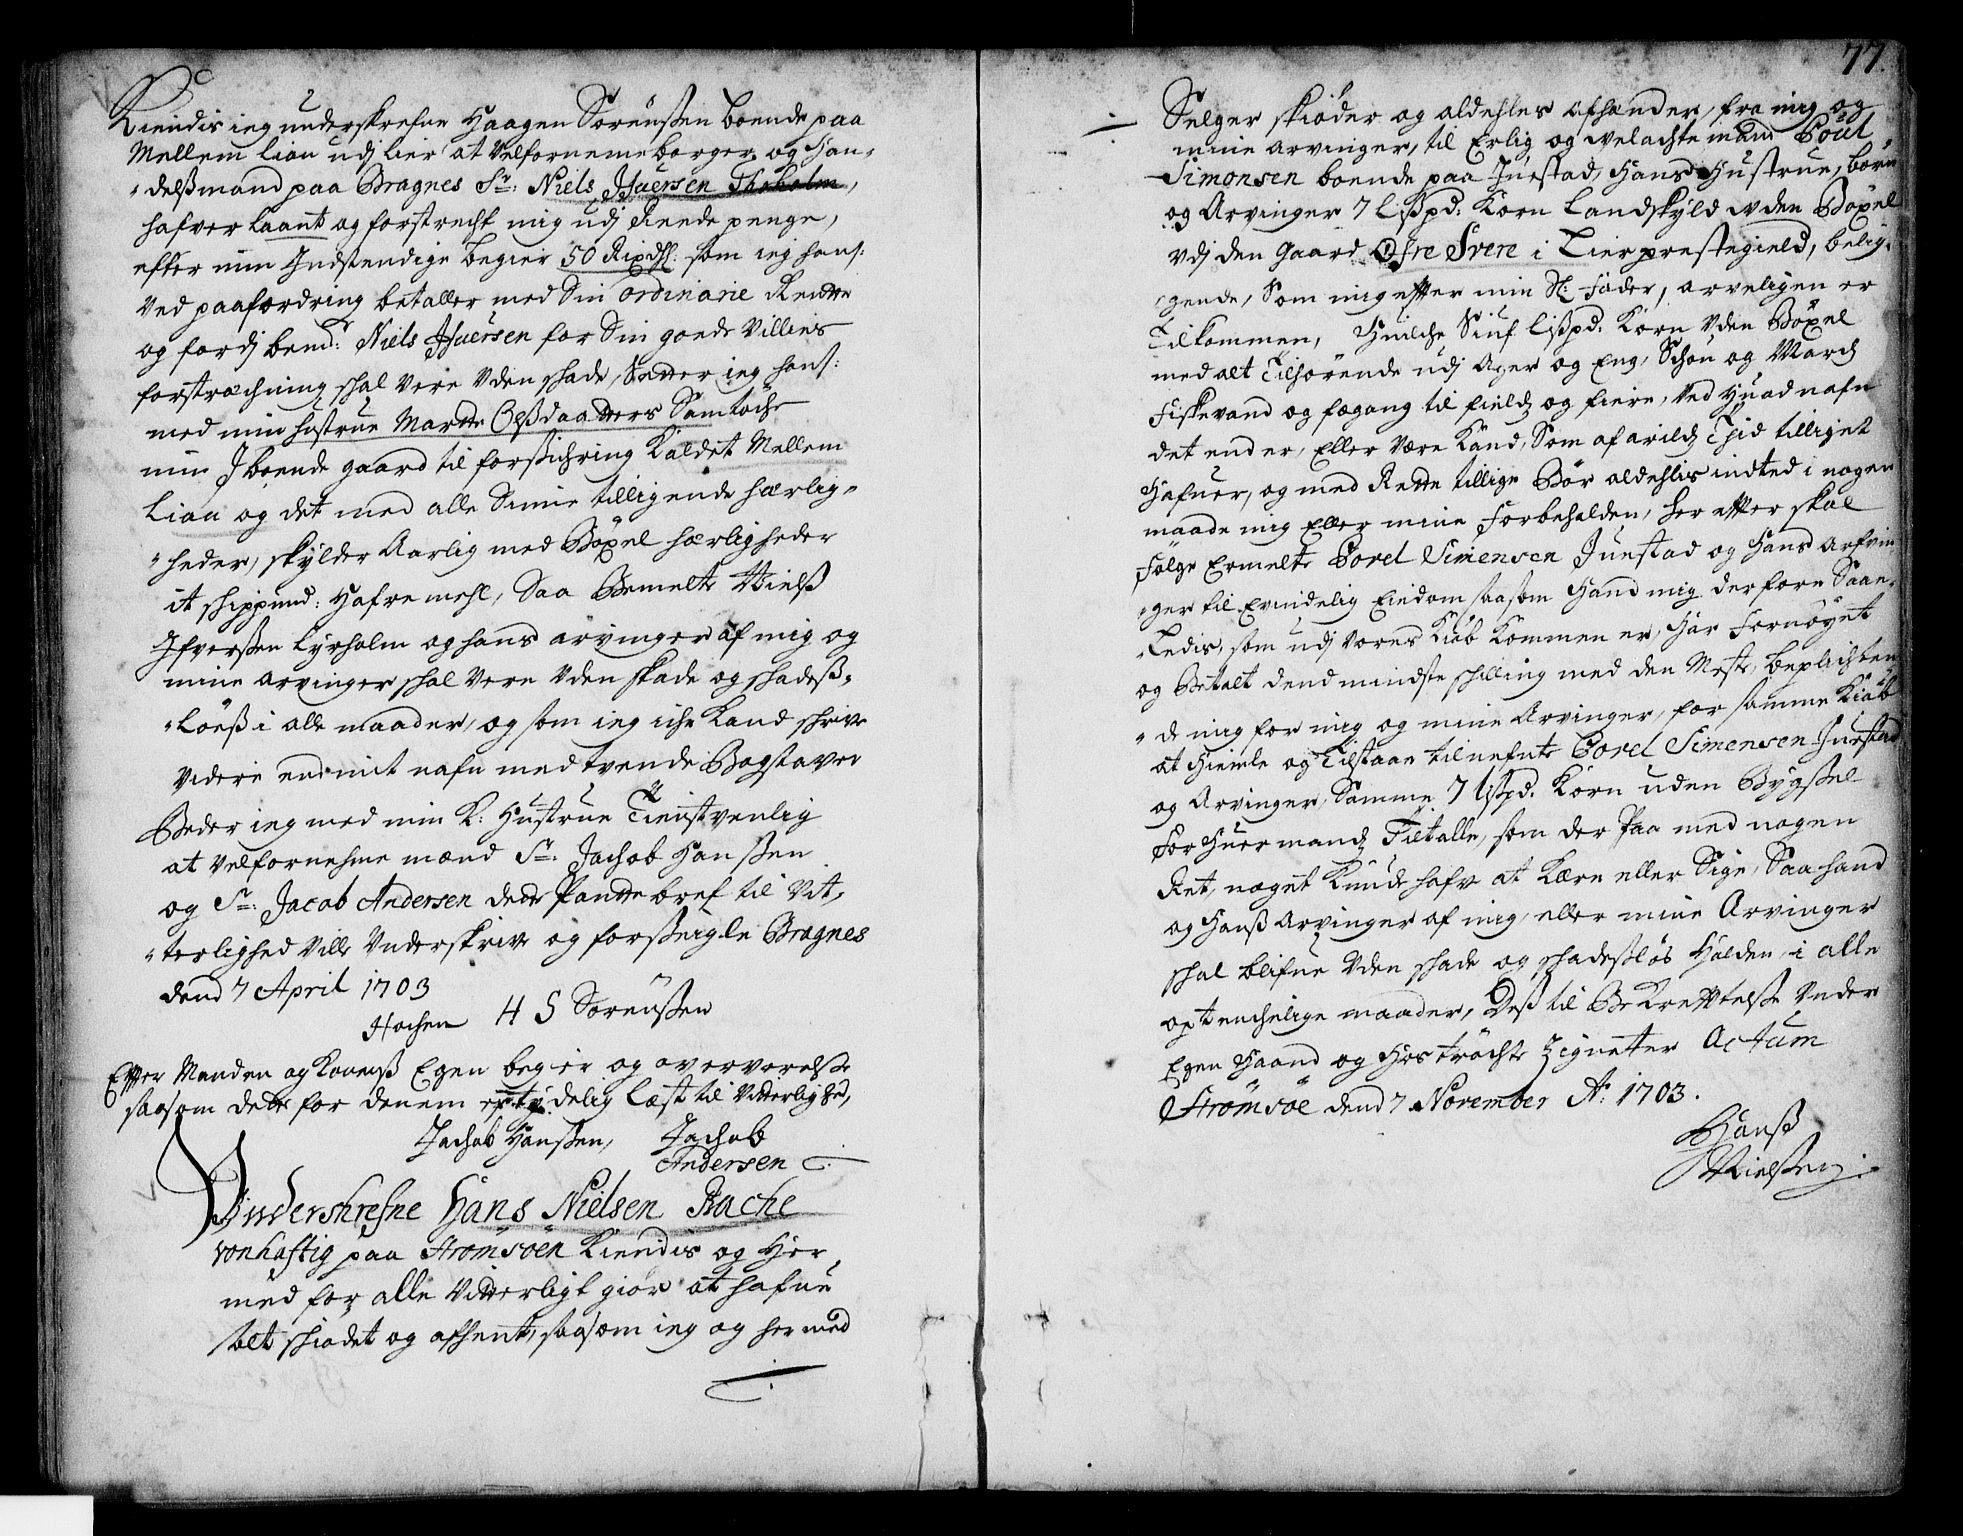 Kiendis ieg underskrefne Haagen Sørenßen boende paa
Mellem Liaa udj Lier at Velforneme borger og Han-
"delßmand paa Bragnes Sr: Niels Ifuersen
hafver Laant og forstracht mig udj Reede penge,
efter min Indstendige begier 50 Rixdl. som ieg hans:
Ved paafordring betaller med Sin ordinarie Rentte
og fordj bemt: Niels Ifuersen for Sin goede Villies
forstræchning schal Vere Uden schade, Sætter ieg hans:
med min hustrue Martte Olßdaatters Samtöche
min Iboende gaard til forßichring Kaldet Mellem
Liaa og det med alle Sinne tilligende hærlig"
"heder, skylder Aarlig med Böxel hærligheder
it schippund: Hafremehl, Saa Bemelte Nielß
Ifverßen Lyrholm og hans arvinger af mig og
mine arvinger schal Vere Uden skade og schadeß"
"Löeß i alle maader, og som ieg iche Kand schrive
Videre end mit nafn med tvende Bogstaver
Beder ieg med min K: Hustrue Tienstvenlig
at Velfornehme mænd Sr: Jachob Hanßen
og Sr: Jacob Andersen dette Panttebref til Vit,
"terlighed Ville Underskrive og forßeigle Bragnes
dend 7 April 1703
Hochen H S Sörenßen
Efter Manden og Konenß Egen begier og overværelße
saasom dette for denem er tydelig Læst til Vitterlighed,
Jachob Hanßen, Jachob
Andersen
Underschrefne Hans Nielsen Bache
vonhaftig paa Strömsöen Kiendis og Her
med for alle Vitterligt giör at hafue
solt schiödet og afhent, saasom ieg og hermed
77.
Selger skiöder og aldehles afhender, fra mig og
mine arvinger, til Erlig og velachte mand Poul
Simonsen boende paa Juestad, Hans Hustrue, börn
og Arvinger 7 Lißpd: Korn Landskyld uden Böxel
udj den Gaard Öfre Svere i Lier prestegield, belig-
gende, Som mig efter min Sl: Fader, arveligen er
Tilkommen, Huilche Siuf Lißpd: Korn Uden Böxel
med alt Tilhörende udj Ager og Eng, Schou og March
Fiskevand og fægang til field og fiere, Ved Huad nafn
det end er, Eller Være Kand, Som af arilds Tid tilliget
Hafuer, og med Rette tillige Bör aldehlis indted i nogen
maade mig Eller mine Forbeholden, her efter skal
Fölge Ermelte Povel Simensen Juestad og Hans arfvin
"ger til Evindelig Eiedom saasom Hand mig derfore Saa-
"ledis, som udj Vores Kiöb Kommen er, Har Fornöyet
og Betalt dend mindste schilling med den Meste, beplichten
"de mig for mig og mine Arvinger, for samme Kiöb
at Hiemle og Tilstaae tilnefnte Povel Simensen Juestad
og Arvinger, Samme 7 Lißpd. Korn uden Bygßel
For Huer mands Tiltalle, som der Paa med nogen
Ret, noget Kunde hafve at Kære eller Sige, Saa hand
og Hanß Arvinger af mig, eller mine Arvinger
schal blifue Uden schade og schadeßlös Holden, i alle
optenchelige maader, Deß til Bekreftelße Under
Egen Haand og Hoströchte Zignetter Actum
Strömsöe dend 7 November Ao: 1703.
Hanß
Nielßen